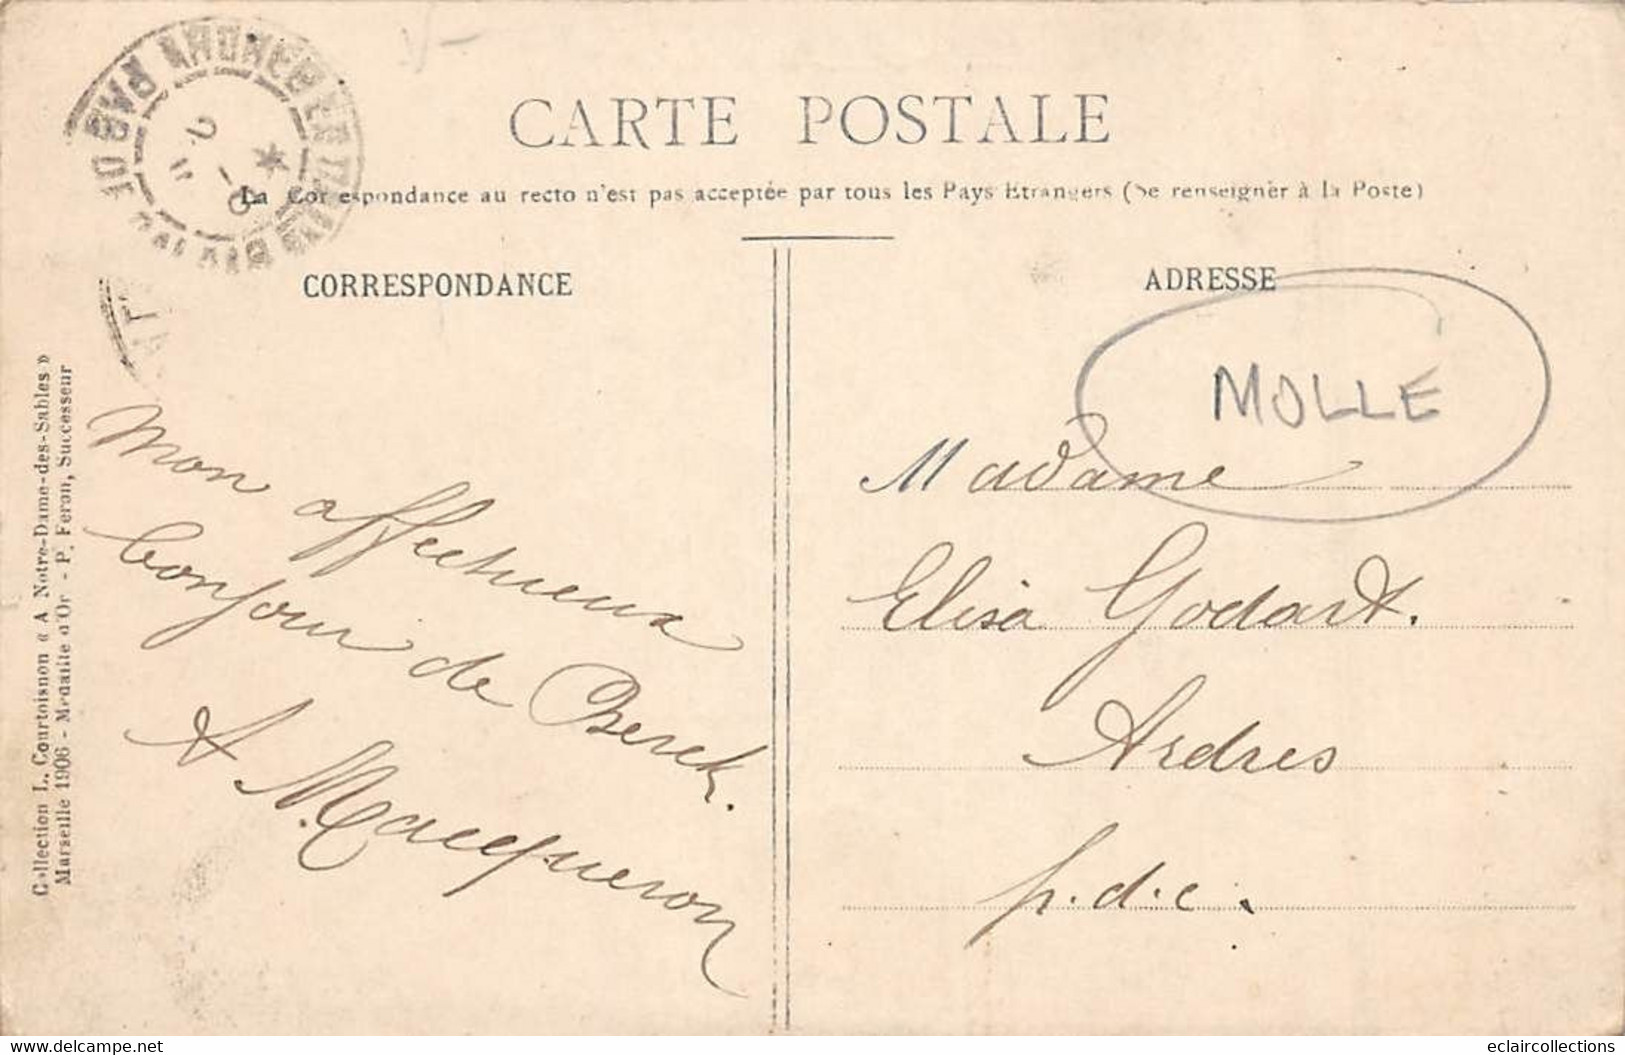 CARTE POSTALE
La Correspondance au recto n'est pas acceptée par tous les Pays Etrangers (Se renseigner à la Poste)
CORRESPONDANCE
ADRESSE
MOLLE
Collection L. Courtoisnon « A Notre-Dame-des-Sables »
Marseille 1906 - Médaille d'Or - P. Feron, Successeur
Mon affectueux
bonjour de Berck.
A. Macqueron
Madame
Elisa Godart.
Ardres
p.d.c.
PAS DE CALAIS
Tous les articles sont scannés recto verso
eclaircollections